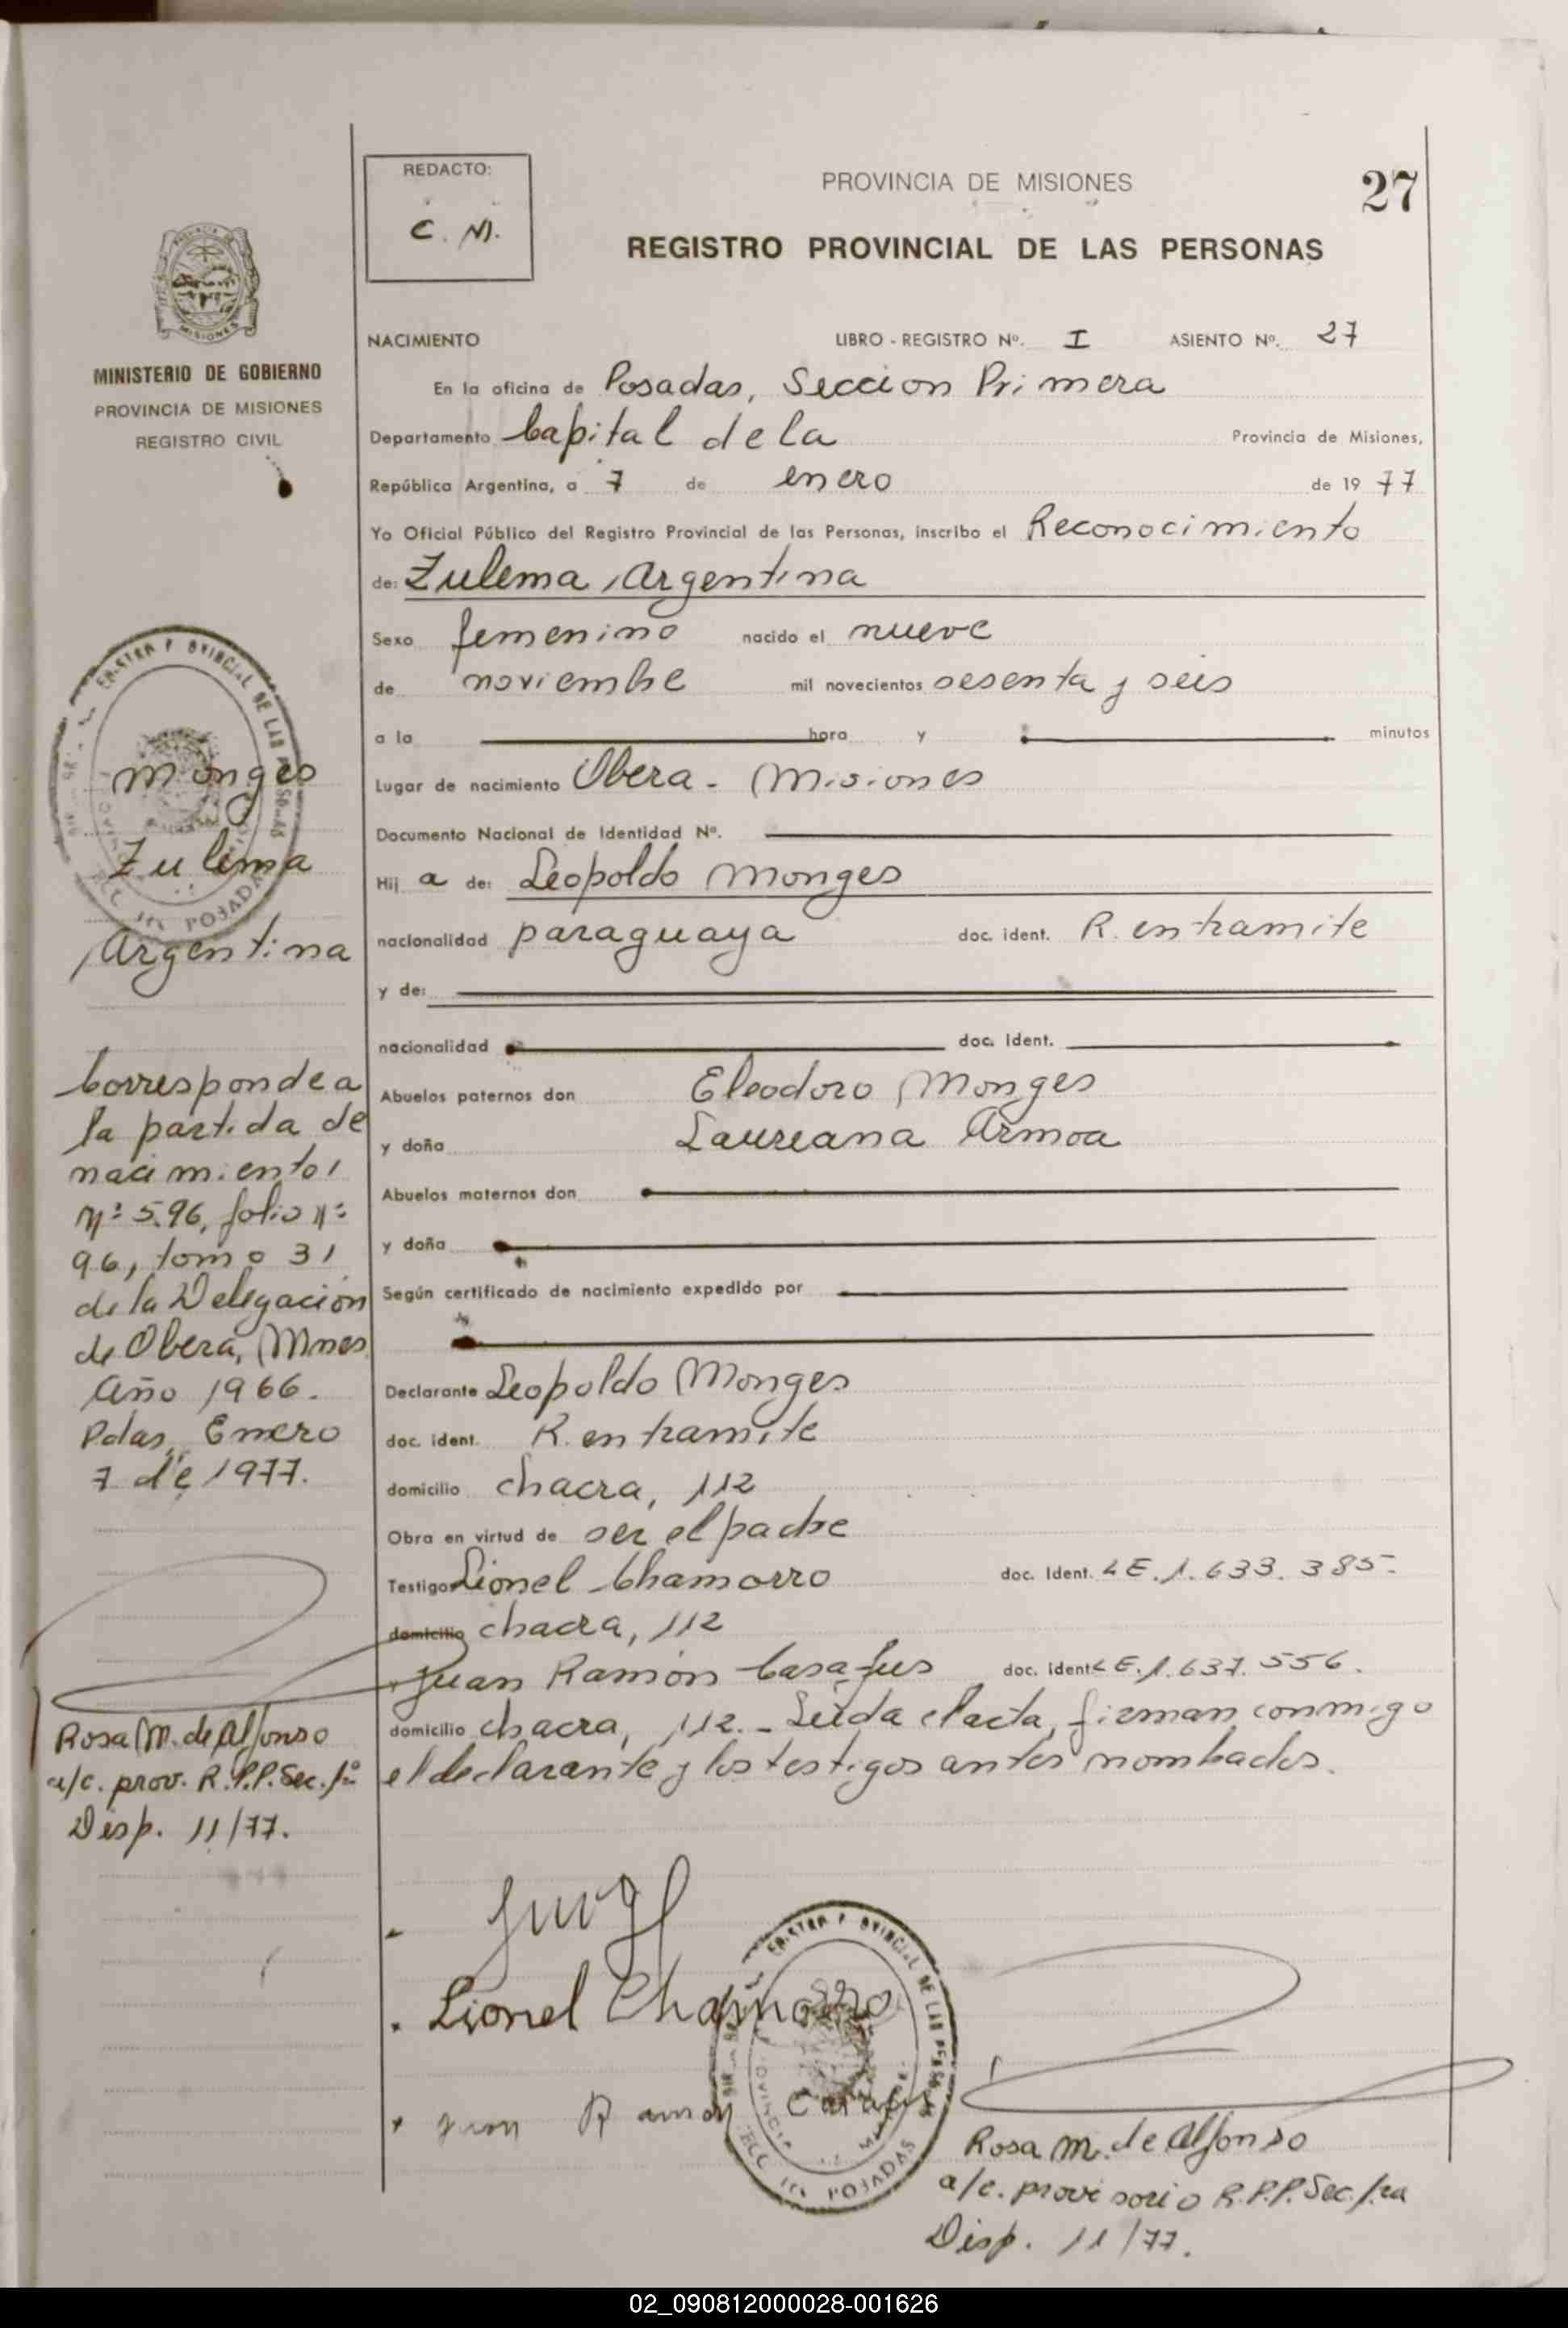 REDACTO:
C. M.
PROVINCIA DE MISIONES
27
REGISTRO PROVINCIAL DE LAS PERSONAS
MINISTERIO DE GOBIERNO
PROVINCIA DE MISIONES
REGISTRO CIVIL
NACIMIENTO LIBRO - REGISTRO Nº. I ASIENTO Nº. 27
En la oficina de Posadas, Seccion Primera
Departamento Capital de la Provincia de Misiones,
República Argentina, a 7 de enero de 1977
Yo Oficial Público del Registro Provincial de las Personas, inscribo el Reconocimiento
de: Zulema Argentina
Sexo femenino nacido el nueve
de noviembre mil novecientos sesenta y seis
a la hora y minutos
Lugar de nacimiento Obera - Misiones
Documento Nacional de Identidad Nº.
Hij a de: Leopoldo Monges
nacionalidad paraguaya doc. ident. R. en tramite
y de:
nacionalidad doc. ident.
Abuelos paternos don Eleodoro Monges
y doña Laureana Armoa
Abuelos maternos don
y doña
Según certificado de nacimiento expedido por
Declarante Leopoldo Monges
doc. ident. R. en tramite
domicilio chacra, 112
Obra en virtud de ser el padre
Testigos Lionel Chamorro doc. Ident. LE. 1.633.385-
domicilio chacra, 112
y Juan Ramón Casafus doc. ident. LE. 1.637.556.
domicilio chacra, 112. - Leida el acta, firman conmigo
el declarante y los testigos antes nombados.
Monges
Zulema
Argentina
Corresponde a
la partida de
nacimiento,
Nº 596, folio Nº
96, tomo 3,
de la Delegación
de Obera, Mnes
Año 1966.
Pdas, Enero
7 de 1977.
Rosa M. de Alfonso
a/c. prov. R.P.P. Sec. 1ª
Disp. 11/77.
Lionel Chamorro
Juan Ramon Casafus
POSADAS
Rosa M. de Alfonso
a/c. provisorio R.P.P. Sec. 1ra
Disp. 11/77.
02_090812000028-001626